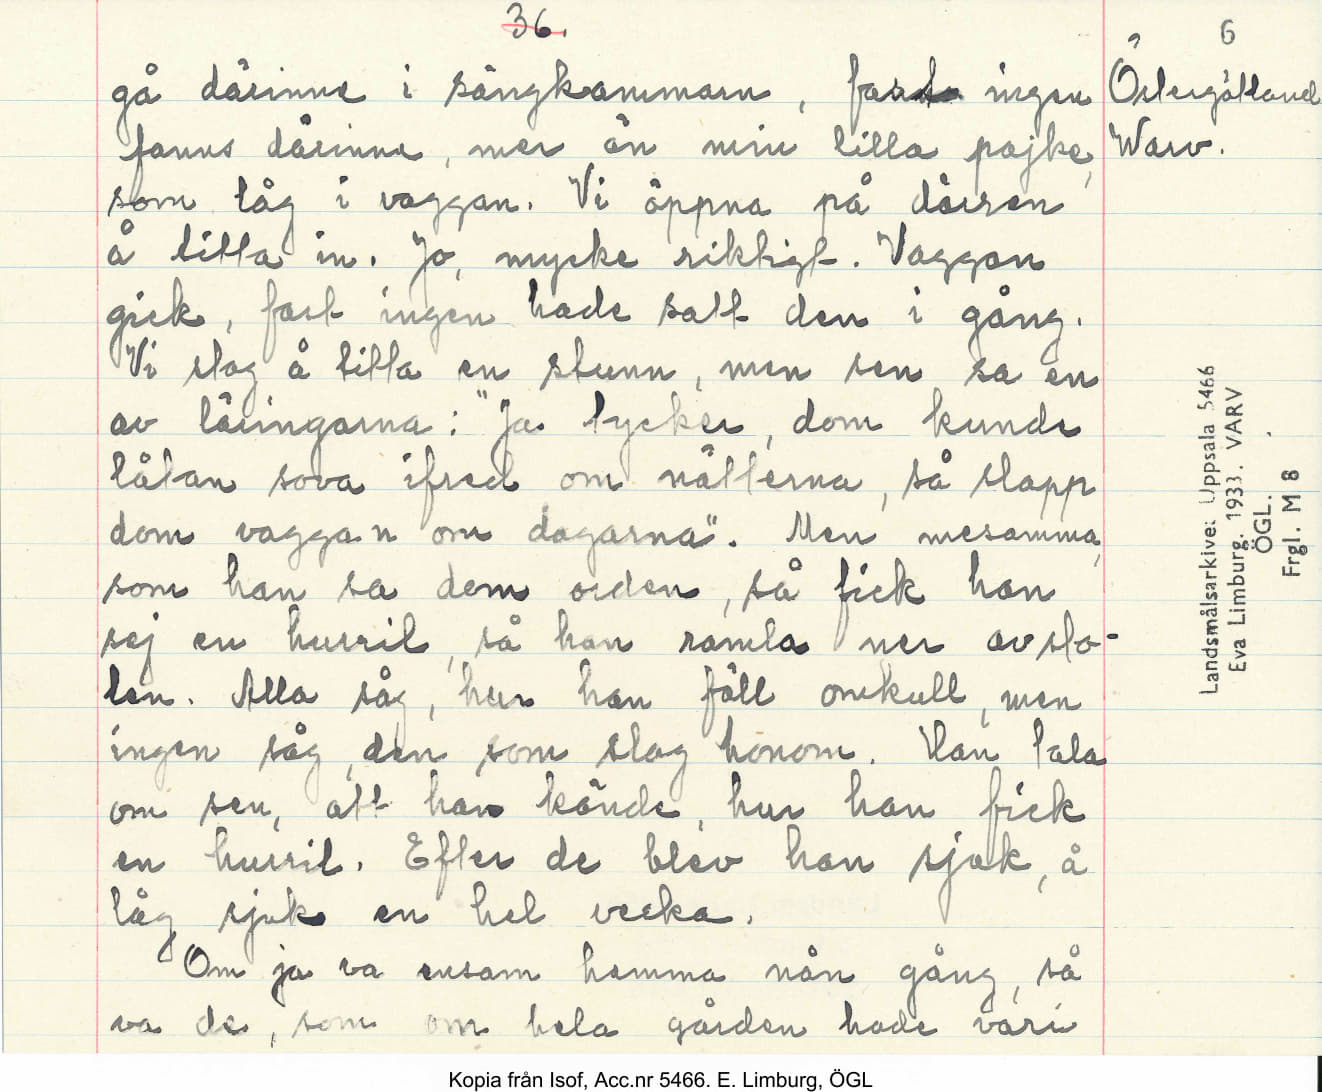 36.
6
gå därinne i sängkammarn, fast ingen
fanns därinne, mer än min lilla pojke,
som låg i vaggan. Vi öppna på dörren
å titta in. Jo, mycke riktigt. Vaggan
gick, fast ingen hade satt den i gång.
Vi stog å titta en stunn, men sen sa en
av läringarna: "Ja tycker, dom kunde
låtan sova ifred om nätterna, så slapp
dom vaggan om dagarna". Men mesamma,
som han sa dem orden, så fick han
sej en hurril, så han ramla ner av sto-
len. Alla såg, hur han föll omkull, men
ingen såg, den som slog honom. Han tala
om sen, att han kände, hur han fick
en hurril. Efter de blev han sjuk, å
låg sjuk en hel vecka.
Om ja va ensam hemma nån gång, så
va de, som om hela gården hade vari
Östergötland
Warv.
Landsmålsarkivet Uppsala 5466
Eva Limburg. 1933. VARV
ÖGL.
Frgl. M 8
Kopia från Isof, Acc.nr 5466. E. Limburg, ÖGL